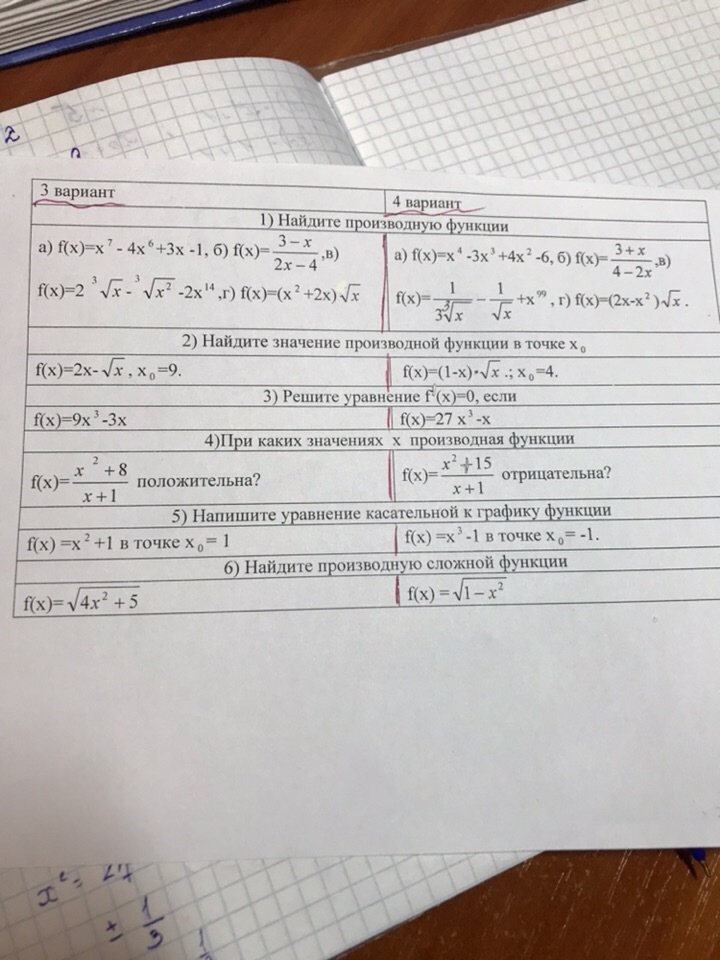 2
3 вариант
4 вариант
1) Найдите производную функции
а) f(x)=x⁷ - 4x⁶+3x -1, б) f(x)=(3−x)/(2x−4),в)
f(x)=2 ³√x-³√x² -2x¹⁴,г) f(x)=(x²+2x)√x
а) f(x)=x⁴ -3x³+4x² -6, б) f(x)=(3+x)/(4−2x),в)
f(x)=1/(3∛x)−1/√x+x⁹⁹, г) f(x)=(2x-x²)√x .
2) Найдите значение производной функции в точке x₀
f(x)=2x-√x , x₀=9.
f(x)=(1-x)·√x .; x₀=4.
3) Решите уравнение f'(x)=0, если
f(x)=9x³-3x
f(x)=27 x³-x
4)При каких значениях x производная функции
f(x)=(x²+8)/(x+1) положительна?
f(x)=(x²+15)/(x+1) отрицательна?
5) Напишите уравнение касательной к графику функции
f(x) =x²+1 в точке x₀= 1
f(x) =x³-1 в точке x₀= -1.
6) Найдите производную сложной функции
f(x)=√(4x²+5)
f(x) =√(1−x²)
x²= 27
± 1/9